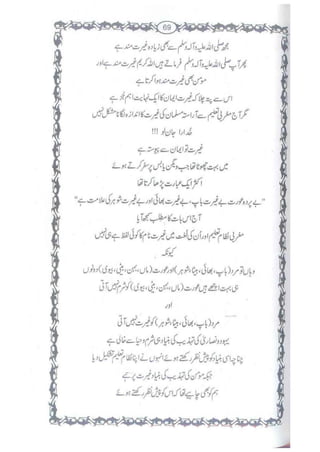 69
مجھ صلی اللہ علیہ وآلہ وسلم سے بھی زیادہ غیرت مند ہے
پھر آپ صلی اللہ علیہ وآلہ وسلم فرماتے ہیں اللہ کریم غیرت مند ہے اور
مومن بھی غیرت مند ہوا کرتا ہے
اس سے پتہ چلا کہ غیرت ایمان کا ایک نہایت اہم جُز ہے
مگر آج مغربی تعلیم سے آراستہ مسلمان کی غیرت کا اندازہ لگانا مشکل نہیں
خدارا جان لو !!!
غیرت تو ایمان سے پیوستہ ہے
میں بہت چھوٹا تھا جب ویگن یا بس پر سفر کرتے ہوئے
اکثر ایک عبارت پڑھا کرتا تھا
"بے پردہ عورت بے غیرت باپ، بے غیرت بھائی اور بے غیرت شوہر کی علامت ہے"
آج اس بات کا مطلب سمجھ آیا
مغربی نظام تعلیم اور اُن کی لغت میں غیرت نام کا کوئی لفظ ہے ہی نہیں
کیونکہ
وہاں تو مرد (باپ، بھائی، بیٹا، شوہر) اور عورت (ماں، بہن، بیٹی، بیوی) دونوں
ہی بہت اچھے ہیں عورت (ماں، بہن، بیٹی، بیوی) کو شرم نہیں آتی
اور
مرد (باپ، بھائی، بیٹا، شوہر) کو غیرت نہیں آتی
یہود و نصاریٰ کی تہذیب کی بنیاد ہی شرم و حیا سے خالی ہے
چنانچہ اسی بنیاد کو پیش نظر رکھتے ہوئے انہوں نے اپنا نظام تعلیم تشکیل دیا
جبکہ مومن کی تہذیب کی بنیاد ہی غیرت پر ہے
ہم کو بھی چاہیے تھا کہ اس کو پیش نظر رکھتے ہوئے